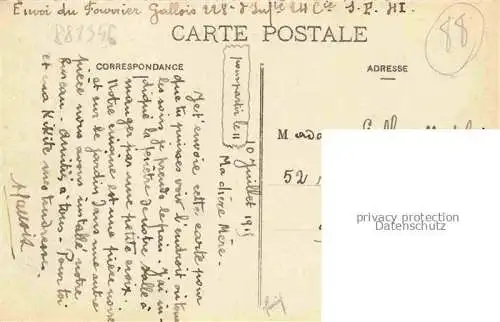 Envoi du Fourrier Gallois 228e d'Infie 24 Cie S.P. 141.
881346
88
CARTE POSTALE
CORRESPONDANCE
ADRESSE
pour partir le 11
10 Juillet 1915
Ma chère Mère.
Je t'envoie cette carte pour
que tu puisses voir l'endroit où tous
les soirs je prends le pain. J'ai in-
diqué la fenêtre de notre salle à
manger par une petite croix.
Notre cuisine est une pièce
et sur le jardin. Dans une autre
pièce nous avons installé notre
bureau. Amitiés à tous. Pour toi
et ma Kikite mes tendresses.
Gallois
Mada
52
privacy protection
Datenschutz